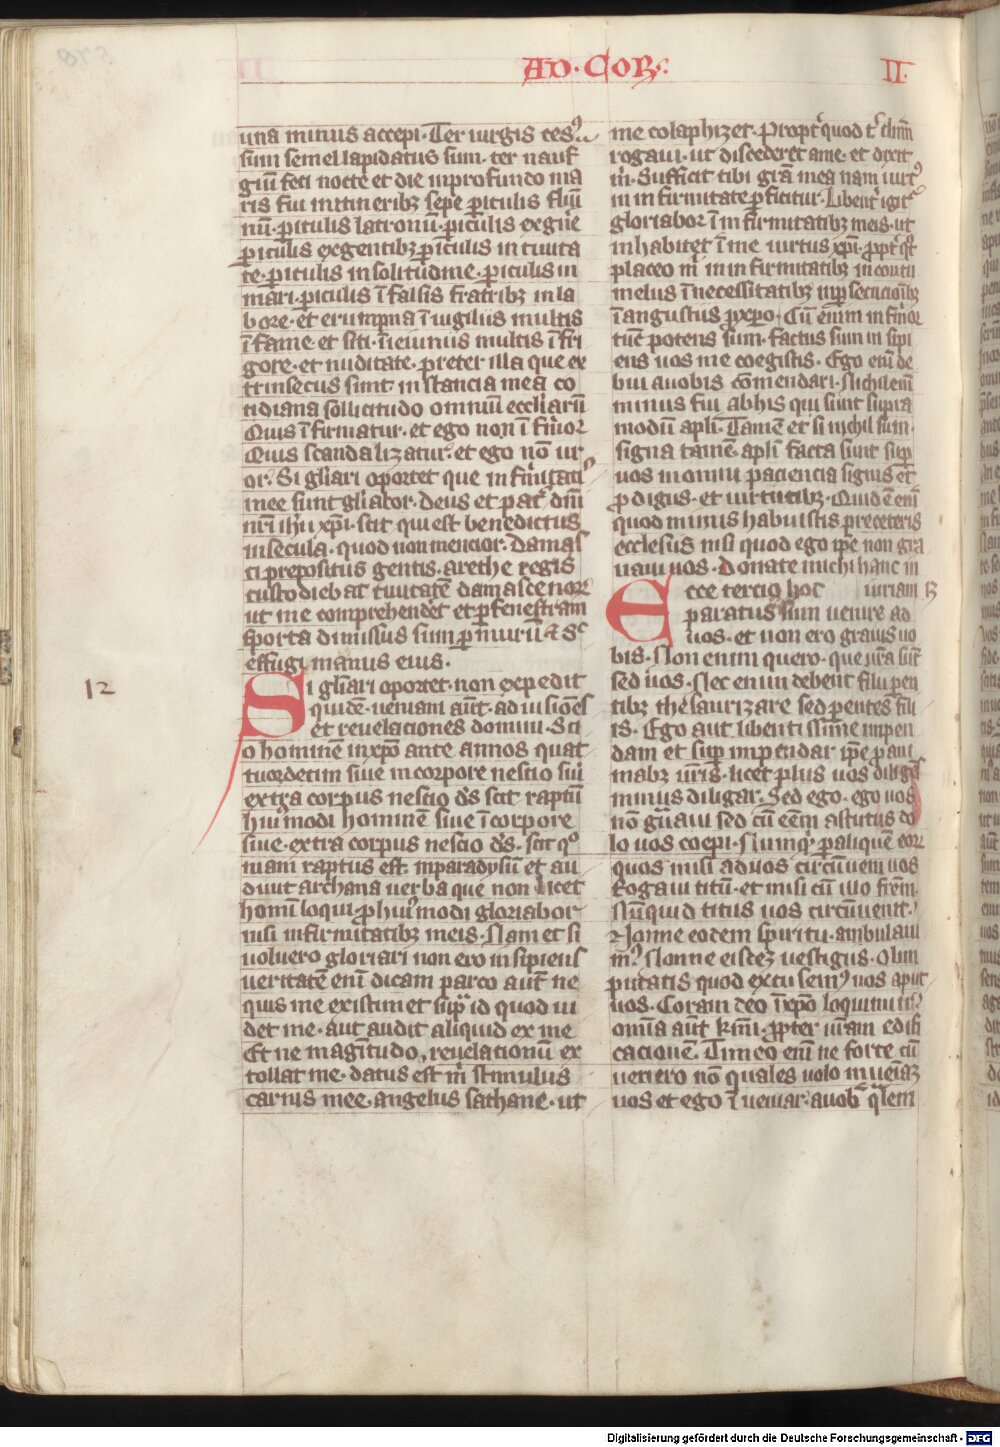 AD · COR · II ·
una minus accepi · Ter uirgis cesꝰ
sum semel lapidatus sum · ter nauf
giū feci nocte et die inprofundo ma
ris fui initineribꝫ sepe ꝑiculis flu̅i
nū · ꝑiculis latronū · ꝑiculis exgn̅e
ꝑiculis exgentibꝫ ꝑiculis in ciuita
te · ꝑiculis in solitudine · ꝑiculis in
mari · ꝑiculis ī falsis fratribꝫ in la
bore · et erumpna ī uigiliis multis
ī fame et siti · ī ieiuniis multis ī fri
gore · et nuditate · preter illa que ex
trinsecus sunt · in stancia mea co
tidiana sollicitudo omniū eccliarū
Quis ī firmatur · et ego non ī firmor
Quis scandalizatur · et ego nō ur
or · Si gl̅iari oportet que in firmitatis
mee sunt gl̅iabor · Deus et pat̓ dn̅i
nr̅i ih̅u xp̅i · scit qui est benedictus
insecula · quod non mencior · Damas
ci prepositus gentis · arethe regis
custodiebat ciuitatē damascenoꝝ
ut me comprehender̅et et ꝑ fenestram
sporta dimissus sum ꝑ murū & sc̅
effugi manus eius ·
12
Si gl̅iari oportet · non expedit
quidē · ueniam aut̅ · ad uisiones
et reuelaciones domini · Sci
o hominē inxp̅o ante annos quat
tuordecim siue incorpore nescio siū
extra corpus nescio d̅s scit raptū
hiuꝰmodi hominē siue ī corpore
siue · extra corpus nescio d̅s · scit qꝰ
niam raptus est · inparadysū et au
diuit archana uerba que non licet
homī loqui ꝓ hiuꝰmodi gloriabor
nisi infirmitatibꝫ meis · Nam et si
uoluero gloriari non ero insipiens
ueritatē enī dicam parco aut̅ ne
quis me existimet sup̅ id quod ui
det me · aut audit aliquid ex me
Et ne magnitudo reuelationū ex
tollat me · datus est m̅ stimulus
carnis mee · angelus sathane · ut
me colaphizet · Propt̓ quod t̓ dm̅
rogaui · ut discederet ame · et dixit
m̅ · Sufficit tibi gr̅a mea nam uirtꝰ
in in firmitate ꝑficitur · Libent̓ igit̓
gloriabor ī in firmitatibꝫ meis · ut
inhabitet ī me uirtus xp̅i · ꝓpt̓ qd̅
placeo m̅ in in firmitatibꝫ in contu
meliis ī necessitatibꝫ inp̅secucioībꝫ
ī angustiis ꝓ xp̅o · Cū enim in firmor
tūc potens sum · factus sum in sipi
ens uos me coegistis · Ego enī de
bui auobis cōmendari · Nichil enī
minus fui abhis qui sunt supra
modū apl̅i · Tamē et si nichil sum ·
signa tamē apl̅i facta sunt sup̅
uos in omni paciencia signis et
ꝓdigiis · et uirtutibꝫ · Quid ē enī
quod minus habuistis pre ceteris
ecclesiis nisi quod ego ip̅e non gra
uaui uos · Donate michi hanc in
Ecce tercio hoc iuriam
paratus sum uenire ad
uos · et non ero grauis uo
bis · Non enim quero · que ur̅a sūt
sed uos · Nec enim debent filii paren
tibꝫ thesaurizare sed parentes fili
is · Ego aut̅ libentissime inpen
dam et sup̅ inpendar ip̅e ꝓ ani
mabꝫ ur̅is · licet plus uos diliges
minus diligar · Sed ego · ego uos
nō gr̅aui sed cū eēm astutus do
lo uos coepi · Nunqͥd ꝑ aliquē eoꝝ
quos misi aduos circūueni uos
Rogaui titū · et misi cū illo frēm ·
Nūquid titus uos circūuenit ·
Nonne eodem spiritu · ambulaui
mꝰ · Nonne eisdeꝫ uestigiis · Olim
putatis quod excusemꝰ uos aput
uos · Coram deo īxp̅o loquimurꝰ
omīa aut̅ kmī · ꝓpter ur̅am edifi
cacionē · Timeo enī ne forte cū
uenero nō quales uolo inueīaꝫ
uos et ego ī ueniar · auob̅ qualem
Digitalisierung gefördert durch die Deutsche Forschungsgemeinschaft - DFG